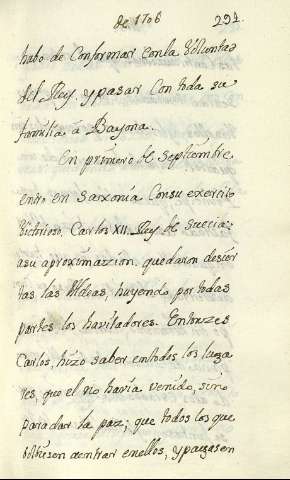 de 1706 291.
hubo de Conformar conla Voluntad
del Rey. y pasar Con toda su
familia à Bayona.
En primero de septiembre
entro en saxonia Consu exercito
Victorioso, Carlos XII. Rey de suecia:
asu aproximazion quedaron desier
tas las Aldeas, huyendo por todas
partes los havitadores. Entonzes
Carlos, hizo saber entodos los luga
res, que el no havia venido, sino
paradar la paz; que todos los que
bolbiesen aentrar enellos, y pagasen